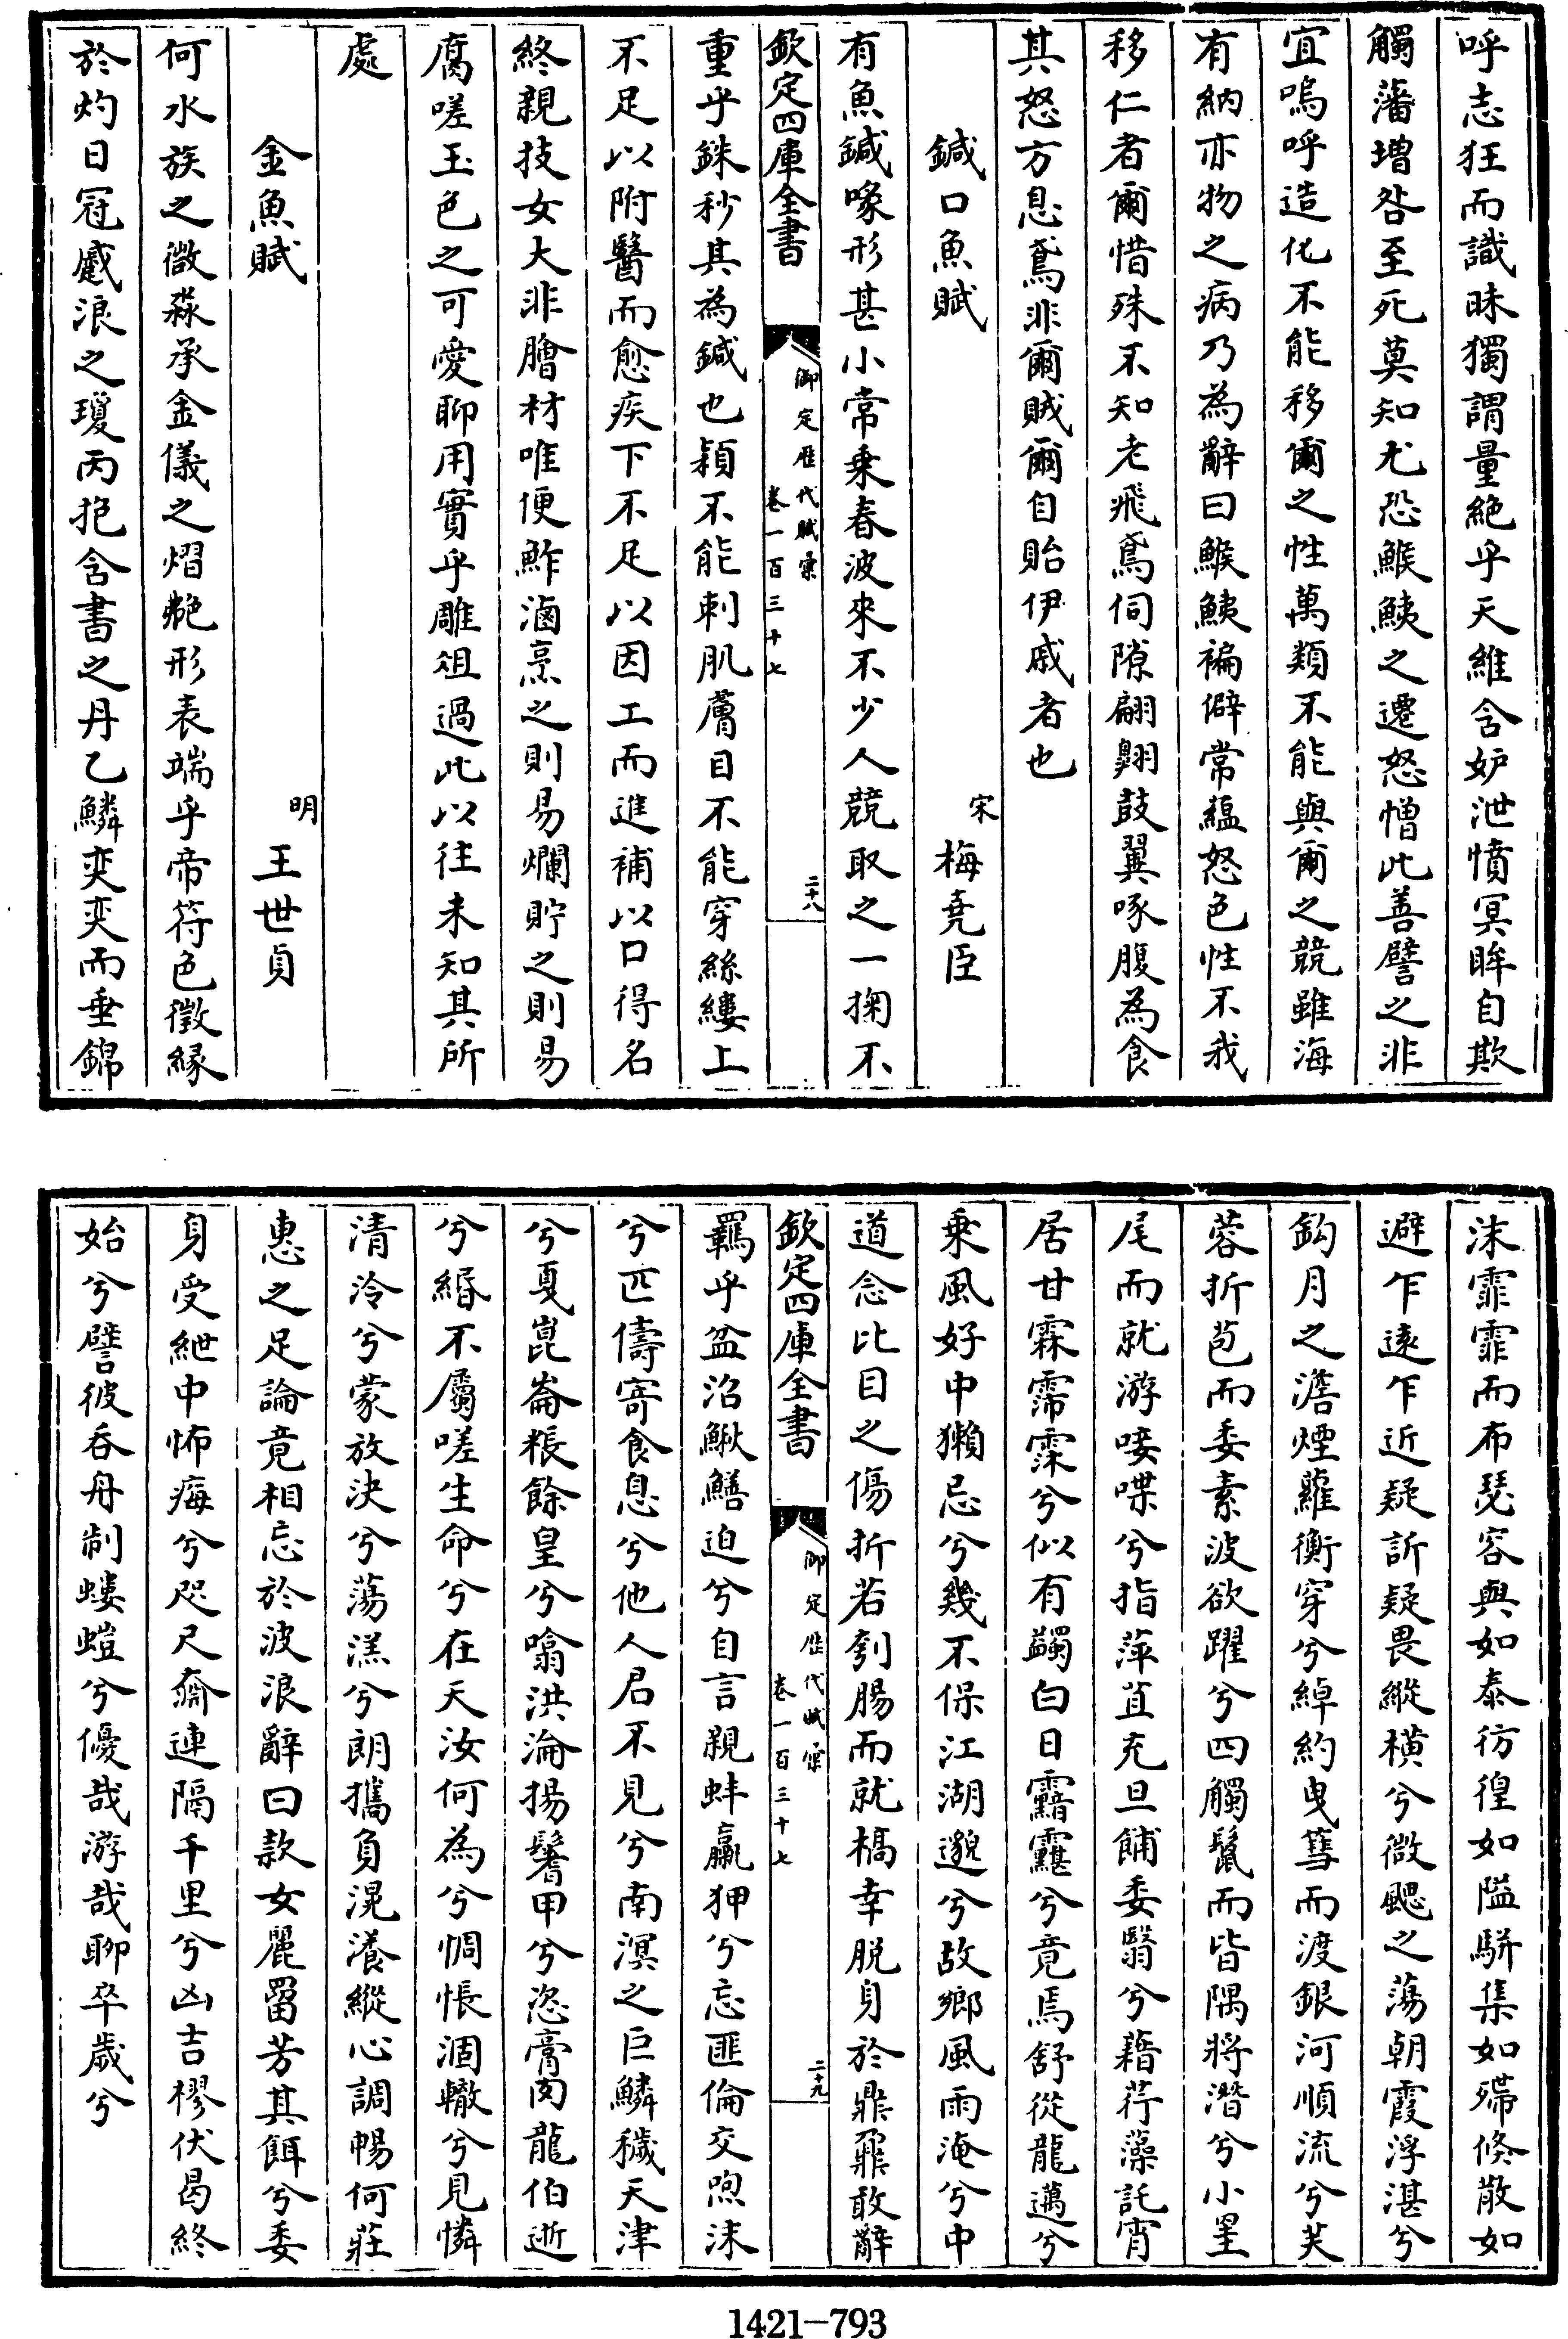 呼志狂而識昧獨謂量絶乎天維含妒泄憤冥眸自欺
觸藩增咎至死莫知尤恐鯸鮧之遷怒憎此善譬之非
宜嗚呼造化不能移爾之性萬類不能與爾之競雖海
有納亦物之病乃為辭曰鯸鮧褊僻常藴怒色性不我
移仁者爾惜殊不知老飛鳶伺隙翩翾鼓翼啄腹為食
其怒方息鳶非爾賊爾自貽伊戚者也
鍼口魚賦
宋 梅堯臣
有魚鍼喙形甚小常乘春波來不少人競取之一掬不
欽定四庫全書
御定歷代賦彙
卷一百三十七
二十八
重乎銖秒其為鍼也穎不能刺肌膚目不能穿絲縷上
不足以附醫而愈疾下不足以因工而進補以口得名
終親技女大非膾材唯便鮓滷烹之則易爛貯之則易
腐嗟玉色之可愛聊用實乎雕俎過此以往未知其所
處
金魚賦
明 王世貞
何水族之微淼承金儀之熠艴形表端乎帝符色徵緣
於灼日冠威浪之瓊丙抱含書之丹乙鱗奕奕而垂錦
沫霏霏而布瑟容與如泰彷徨如隘駢集如殢倏散如
避乍遠乍近疑訢疑畏縱橫兮微颸之蕩朝霞浮湛兮
鈎月之澹煙蘿衡穿兮綽約曳篲而渡銀河順流兮芙
蓉折苞而委素波欲躍兮四觸鬣而皆隅將潛兮小星
尾而就游唼喋兮指萍苴充旦餔委翳兮藉荇藻託宵
居甘霖霈霂兮似有蠲白日靉靆兮竟焉舒從龍邁兮
乘風好中獺忌兮幾不保江湖邈兮故鄉風雨淹兮中
道念比目之傷折若刳腸而就槁幸脱身於鼎鼐敢辭
欽定四庫全書
御定歷代賦彙
卷一百三十七
二十九
羈乎盆沼鰍鱔迫兮自言親蚌蠃狎兮忘匪倫交喣沫
兮匹儔寄食息兮他人君不見兮南溟之巨鱗穢天津
兮戛崑崙粻餘皇兮噏洪淪揚鬐甲兮恣膏肉龍伯逝
兮緡不屬嗟生命兮在天汝何為兮惆悵涸轍兮見憐
清泠兮蒙放決兮蕩漾兮朗攜負滉瀁縱心調暢何莊
惠之足論竟相忘於波浪辭曰款女麗罶芳其餌兮委
身受紲中怖痗兮咫尺齋連隔千里兮凶吉樛伏曷終
始兮譬彼吞舟制螻螘兮優哉游哉聊卒歲兮
1421-793